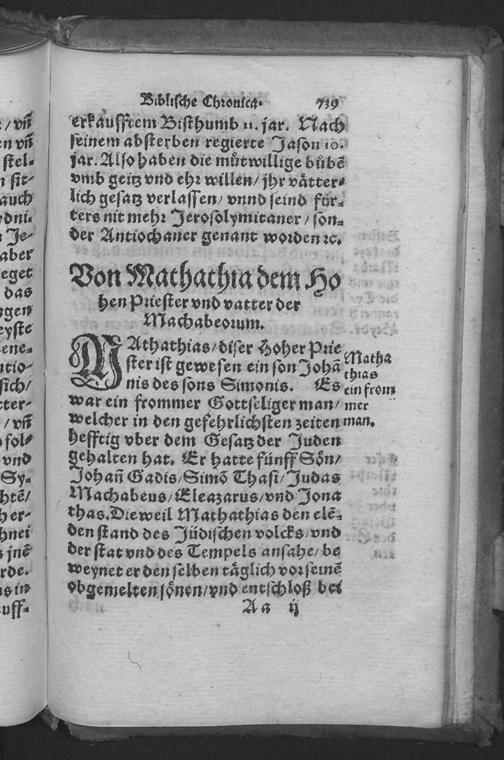 Biblische Chronica. 739
erkaufftem Bisthumb 11. jar. Nach
seinem absterben regierte Jason 10.
jar. Also haben die můtwillige bůbẽ
vmb geitz vnd ehr willen / jhr vätter⸗
lich gesatz verlassen / vnnd seind für⸗
ters nit mehr Jerosolymitaner / son⸗
der Antiochaner genant worden ꝛc.
Von Mathathia dem Ho
hen Priester vnd vatter der
Machabeorum.
MAthathias / diser Hoher Prie
ster ist gewesen ein son Johã
nis des sons Simonis. Es
war ein frommer Gottseliger man /
welcher in den gefehrlichsten zeiten
hefftig vber dem Gesatz der Juden
gehalten hat. Er hatte fünff Sön /
Johañ Gadis / Simõ Thasi / Judas
Machabeus / Eleazarus / vnd Jona
thas. Dieweil Mathathias den elẽ⸗
den stand des Jüdischen volcks / vnd
der stat vnd des Tempels ansahe / be
weynet er den selben täglich vor seinẽ
obgemelten sönen / vnd entschloß bei
Aa ij
Matha
thias
ein from
mer
man.
/ vñ
en vñ
stel⸗
n sit⸗
auch
ydni⸗
n Je⸗
aber
eget
das
ngen
eyste
ene⸗
ntio⸗
sich /
tter⸗
/ vñ
fol⸗
vnd
Sy⸗
htẽ /
her⸗
hnei
s jnẽ
rde.
as in
uff⸗